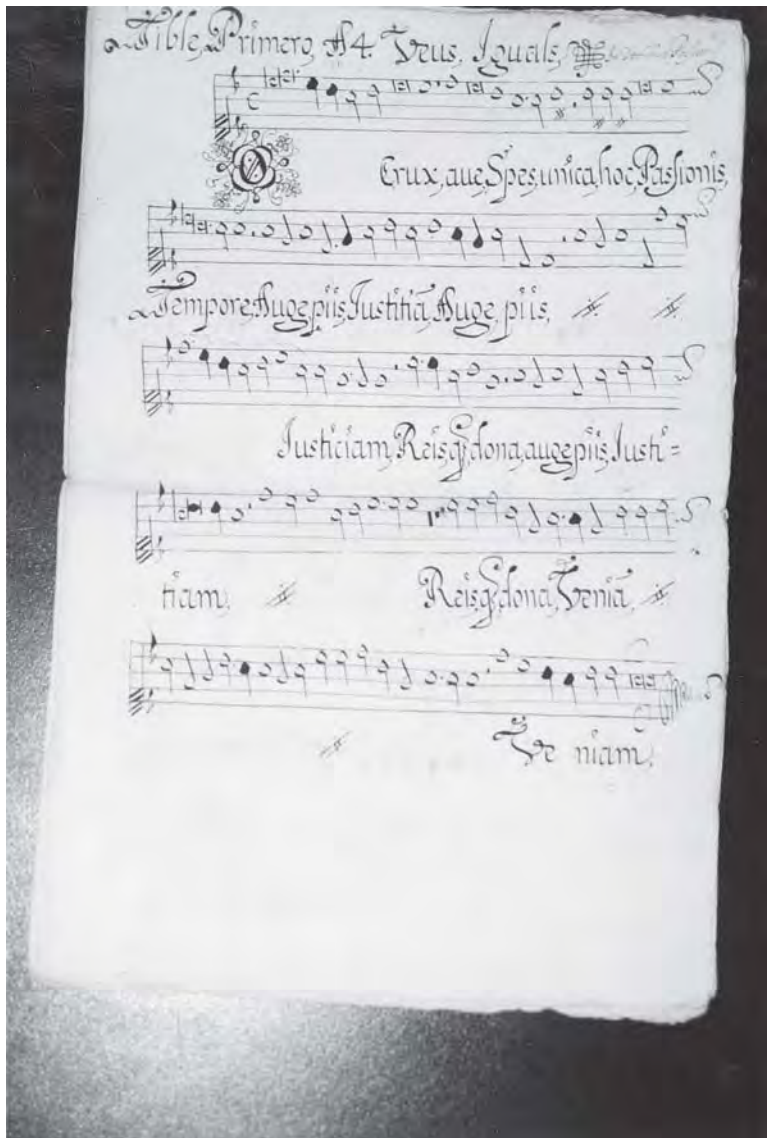 Tible, Primero, A4. Veus, Iguals,
O Crux, aue, Spes, unica, hoc, Passionis,
Tempore, Auge, piis, Iustitiã, Auge, piis,
Iusticiam, Reisq̃, dona, auge, piis, Iusti=
tiam, Reisq̃, dona, Veniã
Ve niam,